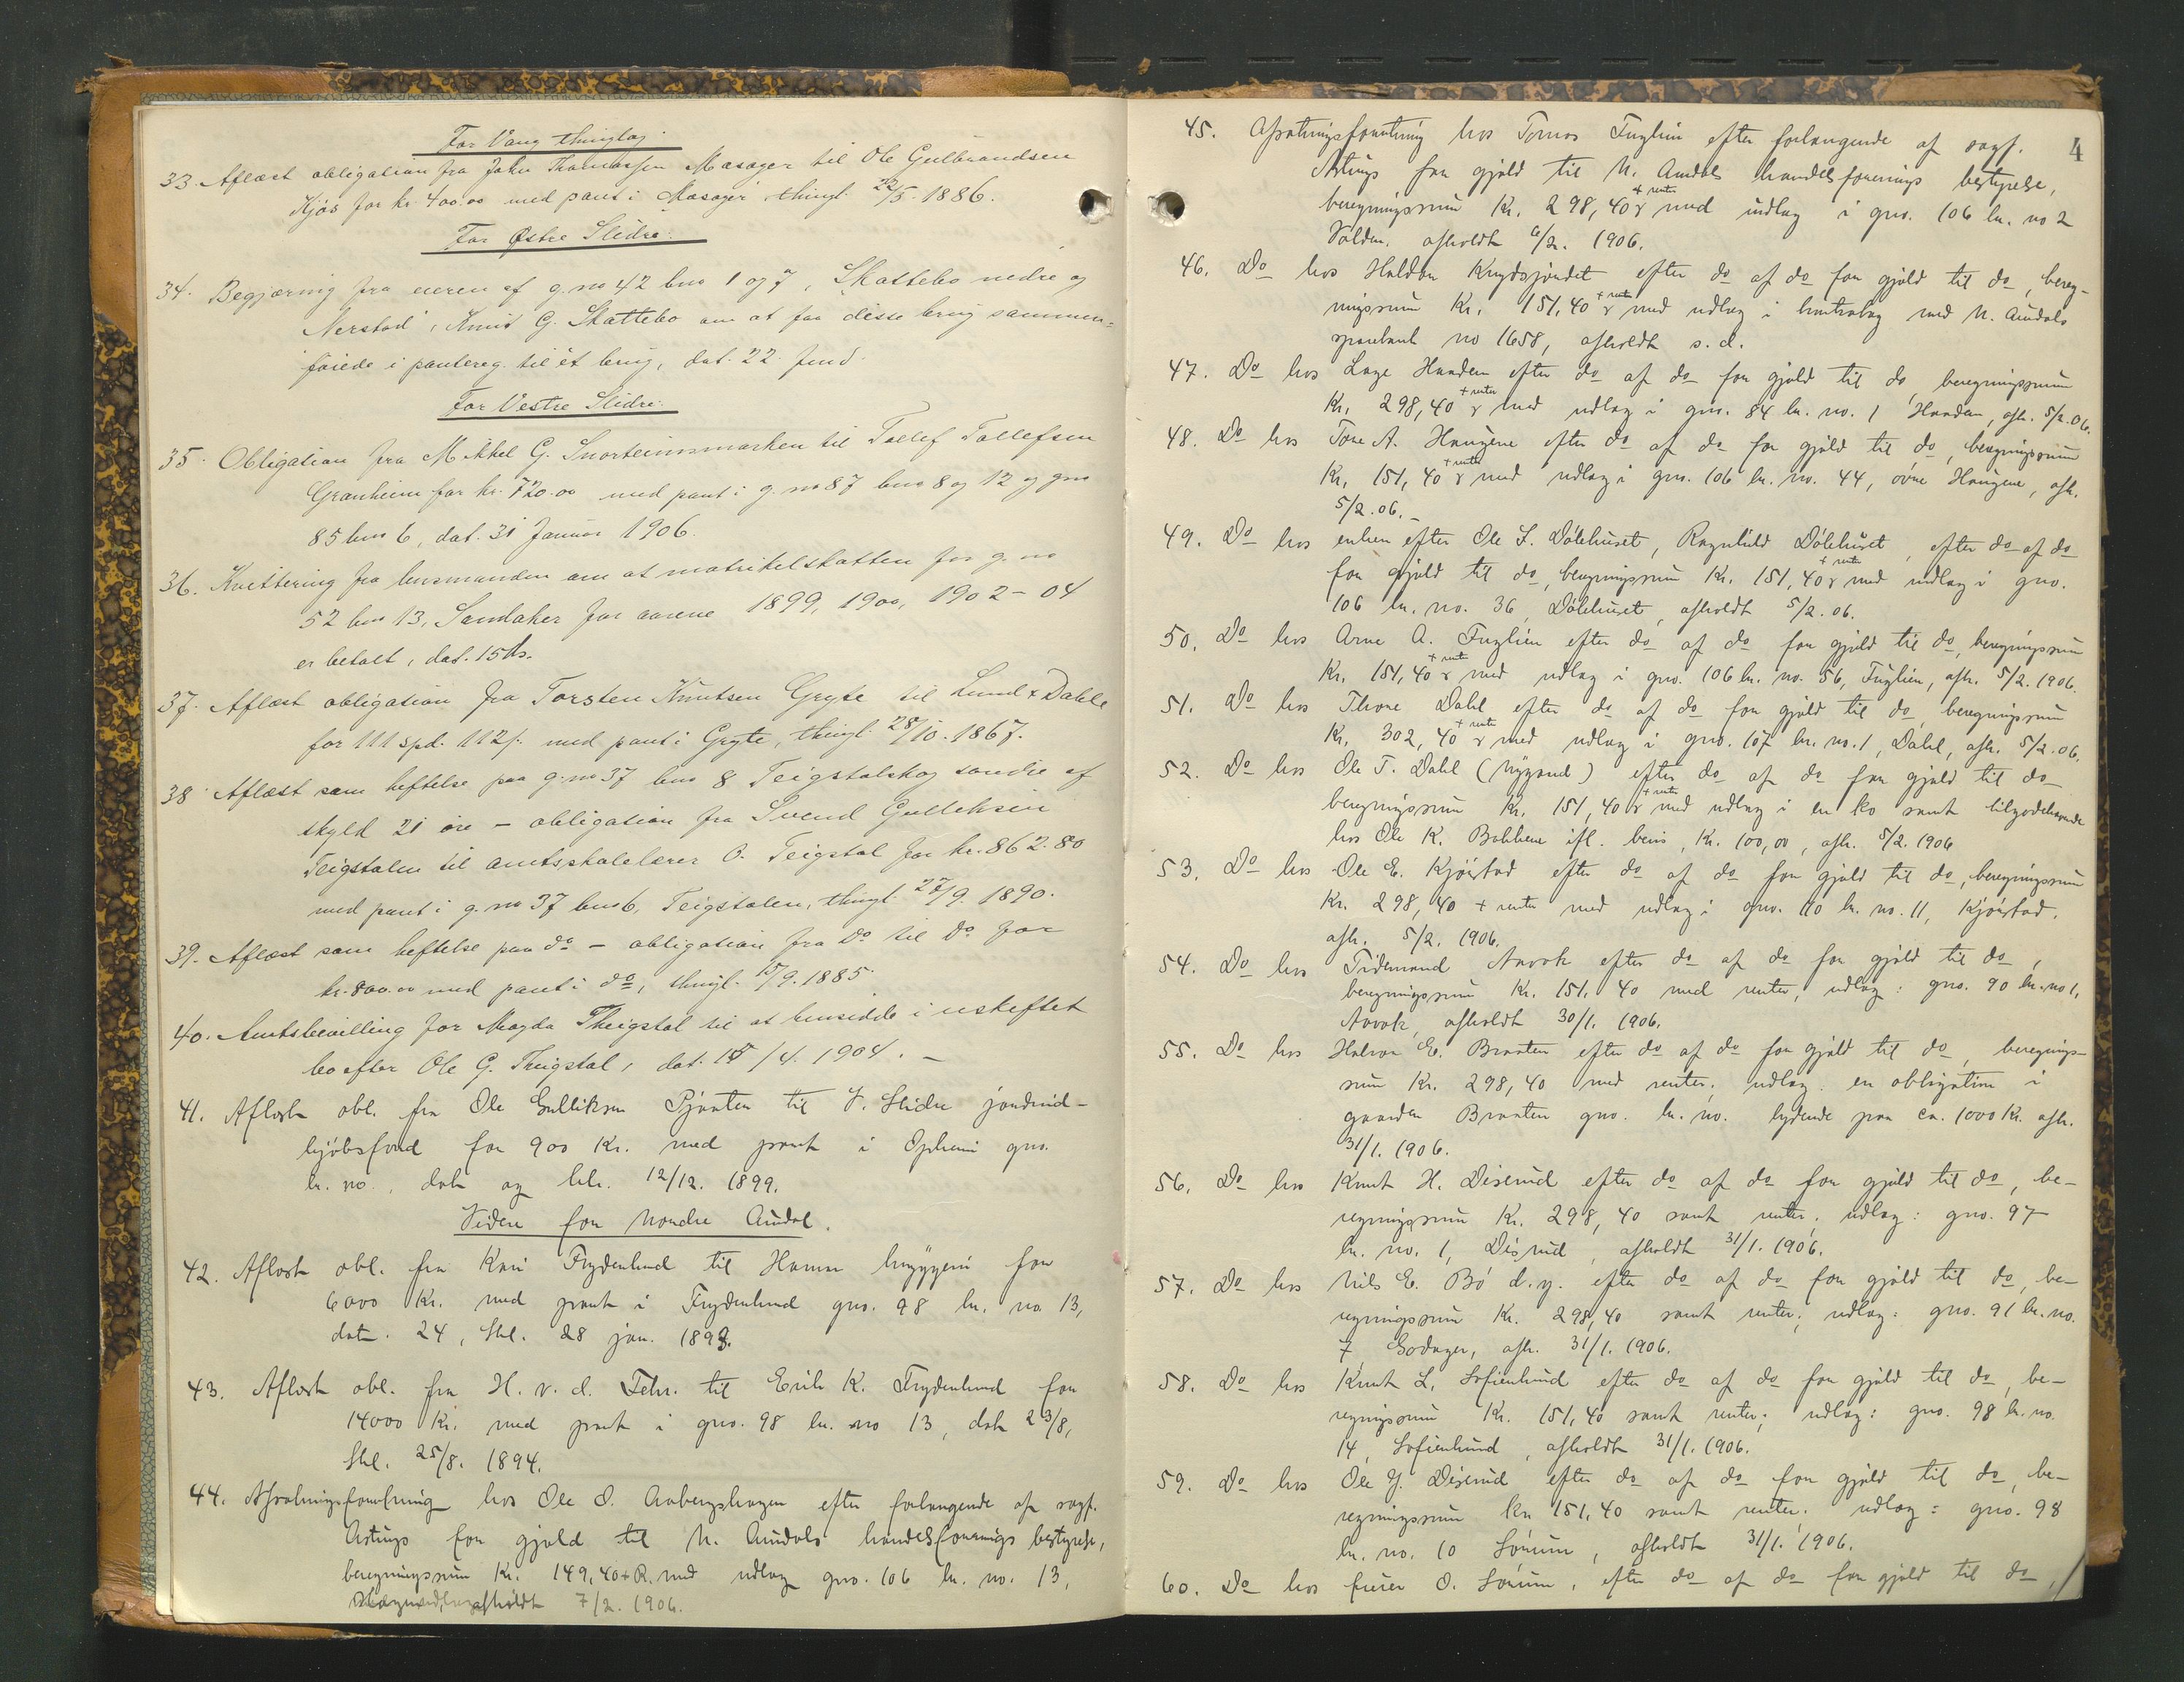 For Vang thinglag.
33. Aflæst obligation fra John Thomassen Masager til Ole Gulbrandsen
Kjøs for kr. 400.00 med pant i Masager thingl. 22/5. 1886.
For Østre Slidre.
34. Begjæring fra eieren af g. no 42 bno 1 og 7, Skattebo nedre og
Nerstad, Knut G. Skattebo om at faa disse brug sammen-
føiede i pantereg. til ét brug, dat. 22.
For Vestre Slidre.
35. Obligation fra Mikkel G. Snorteimsmarken til Tollef Tollefsen
Granheim for kr. 720.00 med pant i g. no 87 bno 8 og 12 og gno
85 bno 6, dat. 31 Januar 1906.
36. Kvittering fra lensmanden om at matrikelskatten for g. no
52 bno 13, Sandaker for aarene 1899, 1900, 1902 - 04
er betalt, dat. 15 ds.
37. Aflæst obligation fra Torsten Knutsen Gryte til Lund & Dahle
for 111 spd. 112 s. med pant i Gryte, thingl. 28/10. 1867.
38. Aflæst som heftelse paa g. no 37 bno 8 Teigstalskog søndre af
skyld 21 øre - obligation fra Svend Gulleksen
Teigstalen til amtsskolelærer O. Teigstal for kr. 862.80
med pant i g. no 37 bno 6, Teigstalen, thingl. 27/9. 1890.
39. Aflæst som heftelse paa do - obligation fra Do til Do for
kr. 800.00 med pant i do, thingl. 15/9. 1885.
40. Amtsbevilling for Magda Theigstal til at hensidde i uskiftet
bo efter Ole G. Theigstal, dat. 15/4. 1904. -
41. Aflæst obl. fra Ole Gulliksen til V. Slidre jordind-
kjøbsfond for 900 kr. med pant i Opheim gno.
br. no., dat og 12/12. 1899.
Videre for Nordre Aurdal.
42. Aflæst obl. fra Kari Frydenlund til Hamar bryggeri for
6000 Kr. med pant i Frydenlund gno. 98 br. no. 13,
dat. 24, thl. 28 jan. 1893.
43. Aflæst obl. fra H. v. d. Fehr. til Erik K. Frydenlund for
14000 Kr. med pant i gno. 98 br. no 13, dat 23/8,
thl. 25/8. 1894.
44. Afsætningsforretning hos Ole O. Aabergshagen efter forlangende af sagf.
Astrups for gjæld til N. Aurdals handelsforenings bestyrelse,
beregningssum Kr. 149,40 + R. med udlæg gno. 106 br. no. 13,
afholdt 7/2. 1906.
4
45. Afsætningsforretning hos Tomas Fuglien efter forlangende af sagf.
Astrups for gjæld til N. Aurdals handelsforenings bestyrelse,
beregningssum Kr. 298,40 + renter med udlæg i gno. 106 br. no 2
Volden, afholdt 6/2. 1906.
46. Do hos Haldor Krydsjordet efter do af do for gjæld til do, bereg-
ningssum Kr. 151,40 + renter med udlæg i kontrabog med N. Aurdals
sparebank no 1658, afholdt s. d.
47. Do hos Lage Haadem efter do af do for gjæld til do, beregningssum
Kr. 298,40 + renter med udlæg i gno. 84 br. no. 1 Haadem, afh. 5/2. 06.
48. Do hos Tore A. Haugene efter do af do for gjæld til do, beregningssum
Kr. 151,40 + renter med udlæg i gno. 106 br. no. 44, øvre Haugene, afh.
5/2. 06. -
49. Do hos enken efter Ole L. Dølehuset, Ragnhild Dølehuset, efter do af do
for gjæld til do, beregningssum Kr. 151,40 + renter med udlæg i gno.
106 br. no. 36, Dølehuset, afholdt 5/2. 06.
50. Do hos Arne A. Fuglien efter do af do for gjæld til do, beregningssum
Kr. 151,40 + renter med udlæg i gno. 106 br. no. 56, Fuglien, afh. 5/2. 1906.
51. Do hos Thore Dahl efter do af do for gjæld til do, beregningssum
Kr. 302,40 + renter med udlæg i gno. 107 br. no. 1, Dahl, afh. 5/2. 06.
52. Do hos Ole T. Dahl (Nygard) efter do af do for gjæld til do
beregningssum Kr. 151,40 + renter med udlæg i en ko samt tilgodehavende
hos Ole K. Bakkene ifl. bevis, Kr. 100,00, afh. 5/2. 1906
53. Do hos Ole E. Kjørstad efter do af do for gjæld til do, beregningssum
Kr. 298,40 + renter med udlæg i gno. 110 br. no. 11, Kjørstad,
afh. 5/2. 1906.
54. Do hos Tidemand Aavok efter do af do for gjæld til do,
beregningssum Kr. 151,40 med renter, udlæg: gno. 90 br. no 1,
Aavok, afholdt 30/1. 1906.
55. Do hos Halvor E. Braaten efter do af do for gjæld til do, beregnings-
sum Kr. 298,40 med renter; udlæg: en obligation i
gaarden Braaten gno. br. no. lydende paa ca. 1000 Kr. afh.
31/1. 1906.
56. Do hos Knut H. Diserud efter do af do for gjæld til do, be-
regningssum Kr. 298,40 samt renter; udlæg: gno. 97
br. no. 1, Diserud, afholdt 31/1. 1906.
57. Do hos Nils E. Bø d. y. efter do af do for gjæld til do, be-
regningssum Kr. 298,40 samt renter; udlæg: gno. 91 br. no.
7 Godager, afh. 31/1. 1906.
58. Do hos Knut L. Sofienlund efter do af do for gjæld til do, be-
regningssum Kr. 151,40 samt renter; udlæg: gno. 98 br. no.
14, Sofienlund, afholdt 31/1. 1906.
59. Do hos Ole G. Diserud efter do af do for gjæld til do, be-
regningssum Kr. 151,40 samt renter; udlæg: gno. 98
br. no. 10 Sørum, afholdt 31/1. 1906.
60. Do hos O. Sørum, efter do af do for gjæld til do,